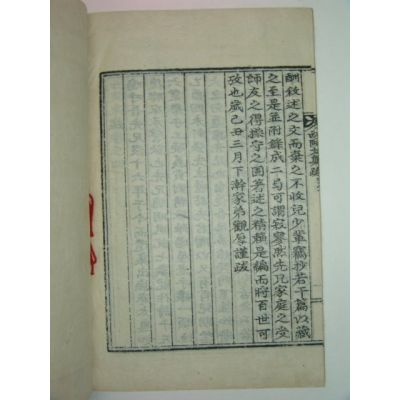 酬敍述之文而棄之不收兒少輩竊抄若干篇以藏
之至是並附錄成二弓可謂寂寥然先兄家庭之受
師友之得操守之固著述之精賴是編而將百世可
攷也歲己丑三月下澣家弟觀厚謹跋